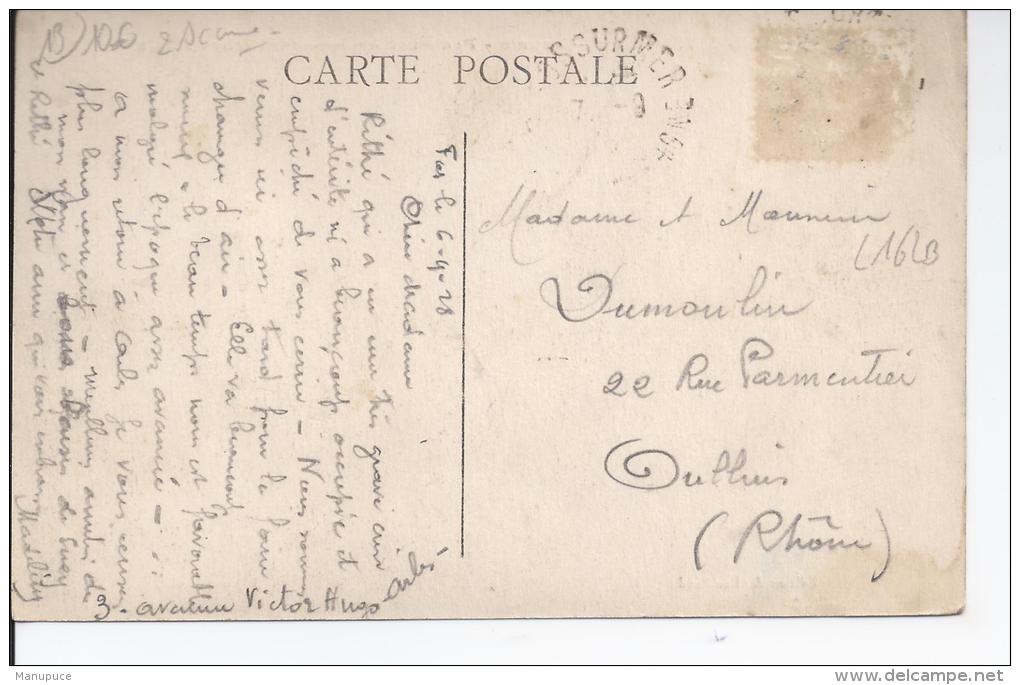 B) 1026
CARTE POSTALE
SSURMER
7 - 9
Fos le 6-9-28
Chère Madame
Rithé qui a eu une très grave crise
d'entérite m'a beaucoup occupée et
empêché de vous écrire - Nous sommes
venus ici assez tard pour le faire
changer d'air - Elle va beaucoup
mieux - le beau temps nous est favorable
malgré l'époque assez avancée -
à mon retour à Arles je vous écrirai
plus longuement - meilleures amitiés de
mon mari et baisers de Suzy
et Rithé Votre amie qui vous embrasse
3 - avenue Victor Hugo
Arles
Madame et Monsieur
Dumoulin
22 Rue Parmentier
Oullins
(Rhône)
(16LB
Manupuce
delcampe.net